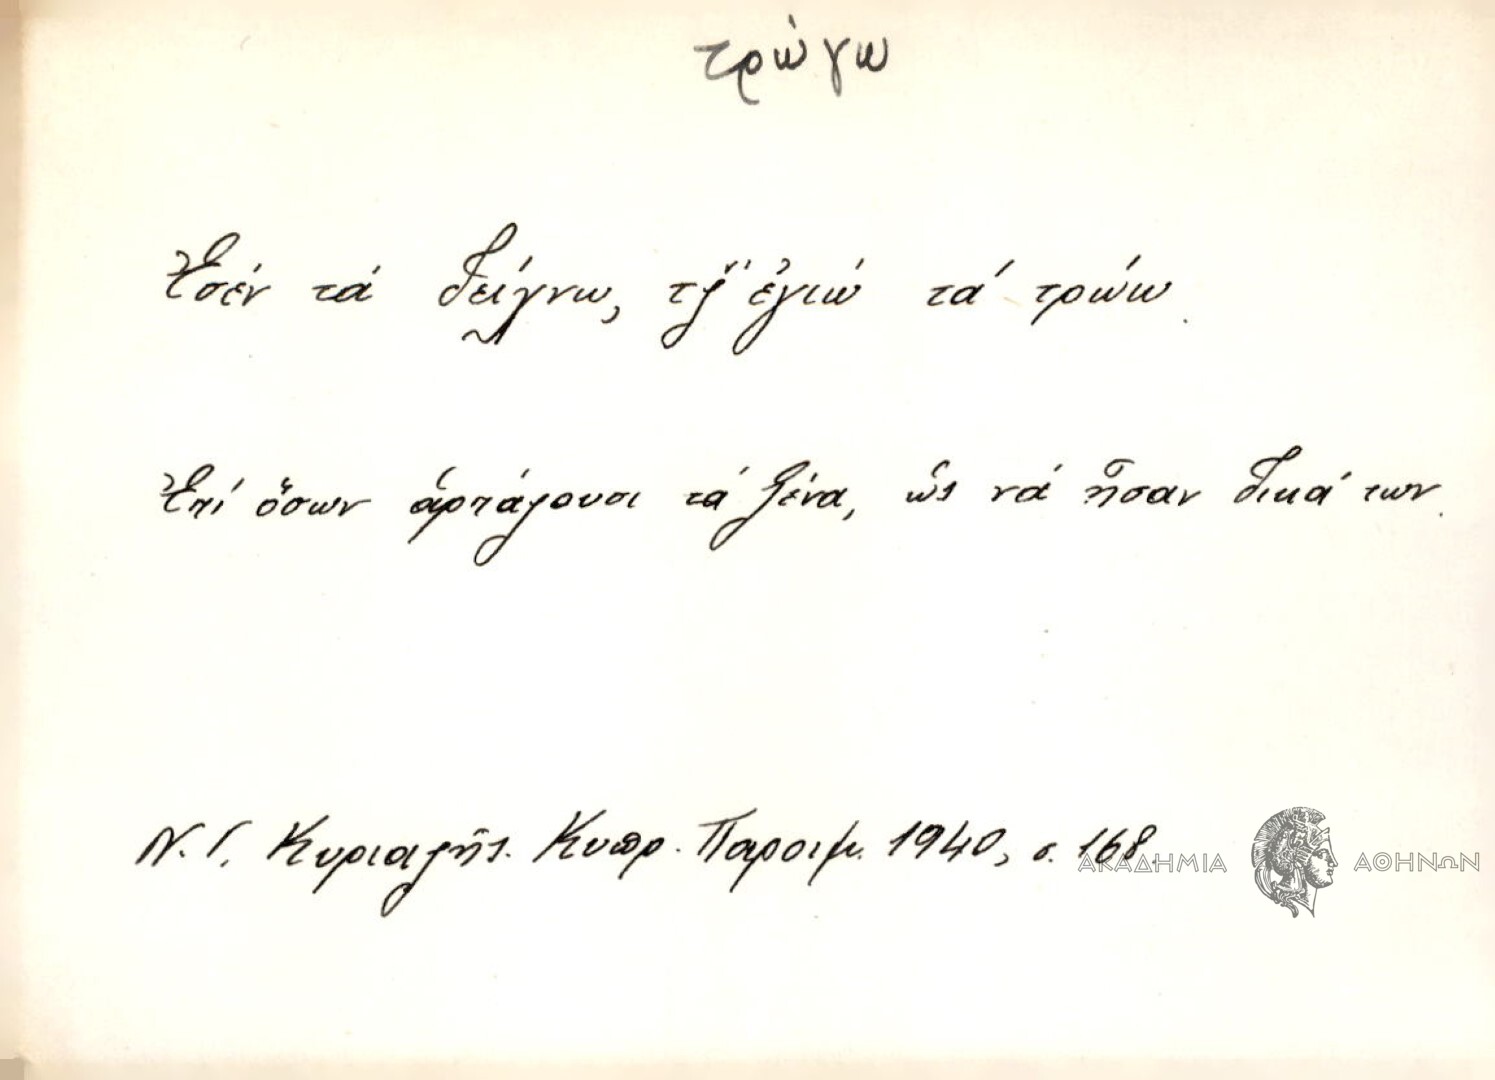 τρώγω
Ἐσέν τά δείχνω, τζ̌' ἐγιώ τά τρώω.
Ἐπί ὅσων ἁρπάζουσι τά ξένα, ὡς νά ἦσαν δικά των.
Ν. Γ. Κυριαζῆς. Κυπρ. Παροιμ. 1940, σ. 168.
ΑΚΑΔΗΜΙΑ ΑΘΗΝΩΝ